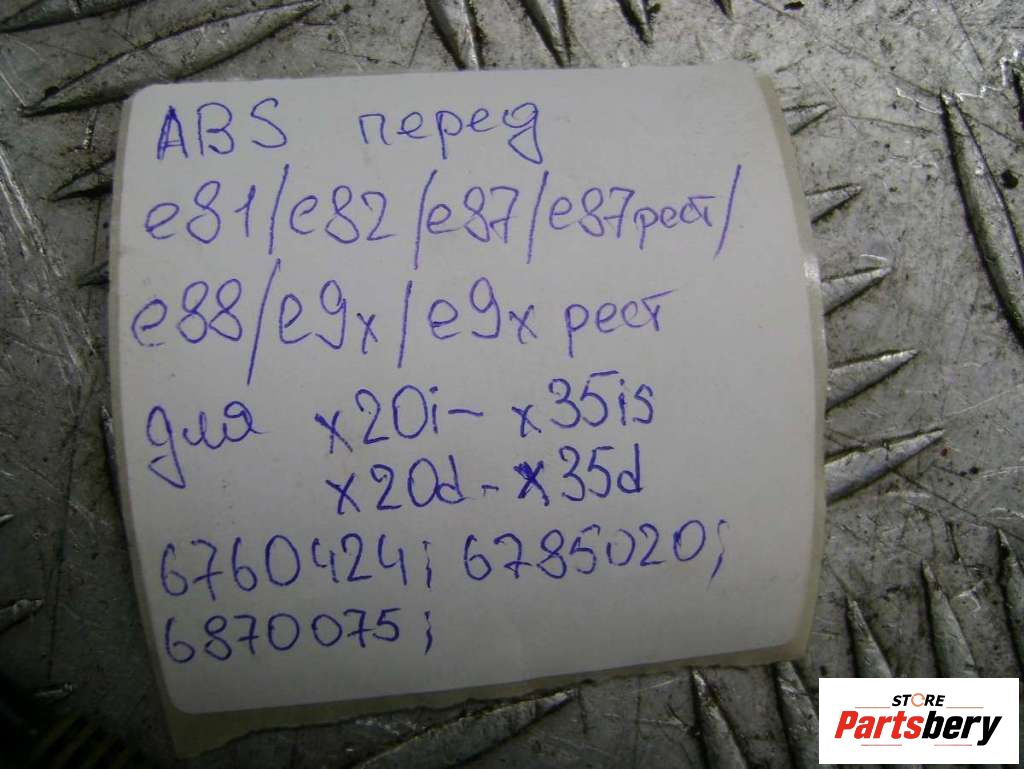 ABS перед
e81/e82/e87/e87рест/
e88/e9x/e9x рест
для x20i- x35is
x20d - x35d
6760424; 6785020;
6870075;
STORE
Partsbery